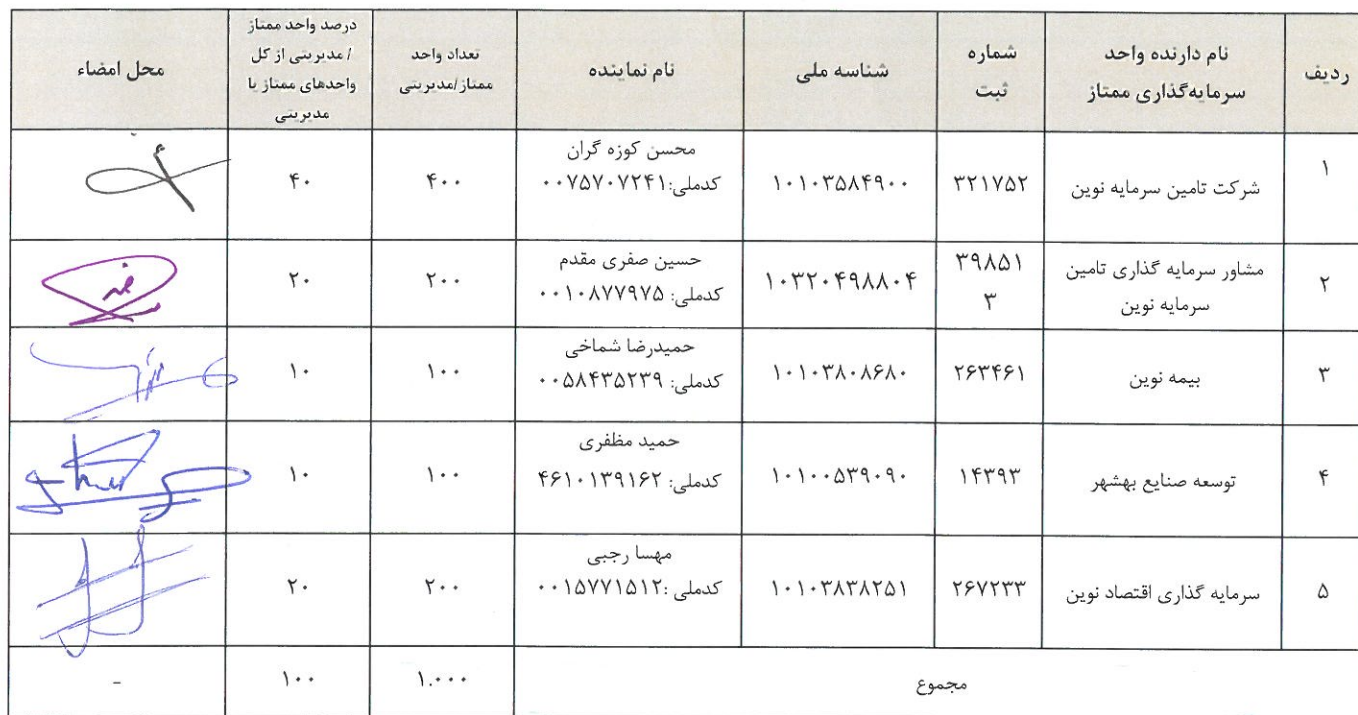 ردیف
نام دارنده واحد
سرمایه‌گذاری ممتاز
شماره
ثبت
شناسه ملی
نام نماینده
تعداد واحد
ممتاز/مدیریتی
درصد واحد ممتاز
/ مدیریتی از کل
واحدهای ممتاز یا
مدیریتی
محل امضاء
۱
شرکت تامین سرمایه نوین
۳۲۱۷۵۲
۱۰۱۰۳۵۸۴۹۰۰
محسن کوزه گران
کدملی:۰۰۷۵۷۰۷۲۴۱
۴۰۰
۴۰
۲
مشاور سرمایه گذاری تامین
سرمایه نوین
۳۹۸۵۱
۳
۱۰۳۲۰۴۹۸۸۰۴
حسین صفری مقدم
کدملی: ۰۰۱۰۸۷۷۹۷۵
۲۰۰
۲۰
۳
بیمه نوین
۲۶۳۴۶۱
۱۰۱۰۳۸۰۸۶۸۰
حمیدرضا شماخی
کدملی: ۰۰۵۸۴۳۵۲۳۹
۱۰۰
۱۰
۴
توسعه صنایع بهشهر
۱۴۳۹۳
۱۰۱۰۰۵۳۹۰۹۰
حمید مظفری
کدملی: ۴۶۱۰۱۳۹۱۶۲
۱۰۰
۱۰
۵
سرمایه گذاری اقتصاد نوین
۲۶۷۲۳۳
۱۰۱۰۳۸۳۸۲۵۱
مهسا رجبی
کدملی :۰۰۱۵۷۷۱۵۱۲
۲۰۰
۲۰
مجموع
۱.۰۰۰
۱۰۰
-